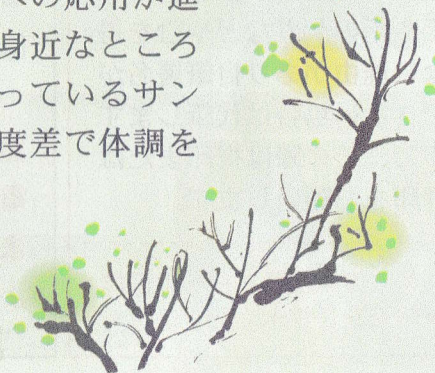 への応用が進
身近なところ
っているサン
度差で体調を